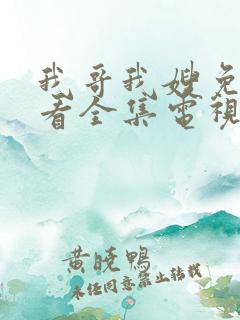 我哥我嫂免
看全集電視
黄晓鸭
未经同意禁止转载